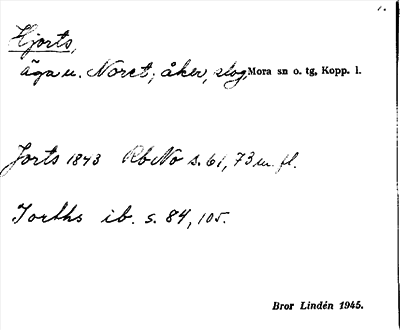 1.
Hjorts,
äga u. Noret; åker, slog, Mora sn o. tg, Kopp. l.
Jorts 1843 RbNo s. 61, 73 m. fl.
Jorths ib. s. 84, 105.
Bror Lindén 1945.